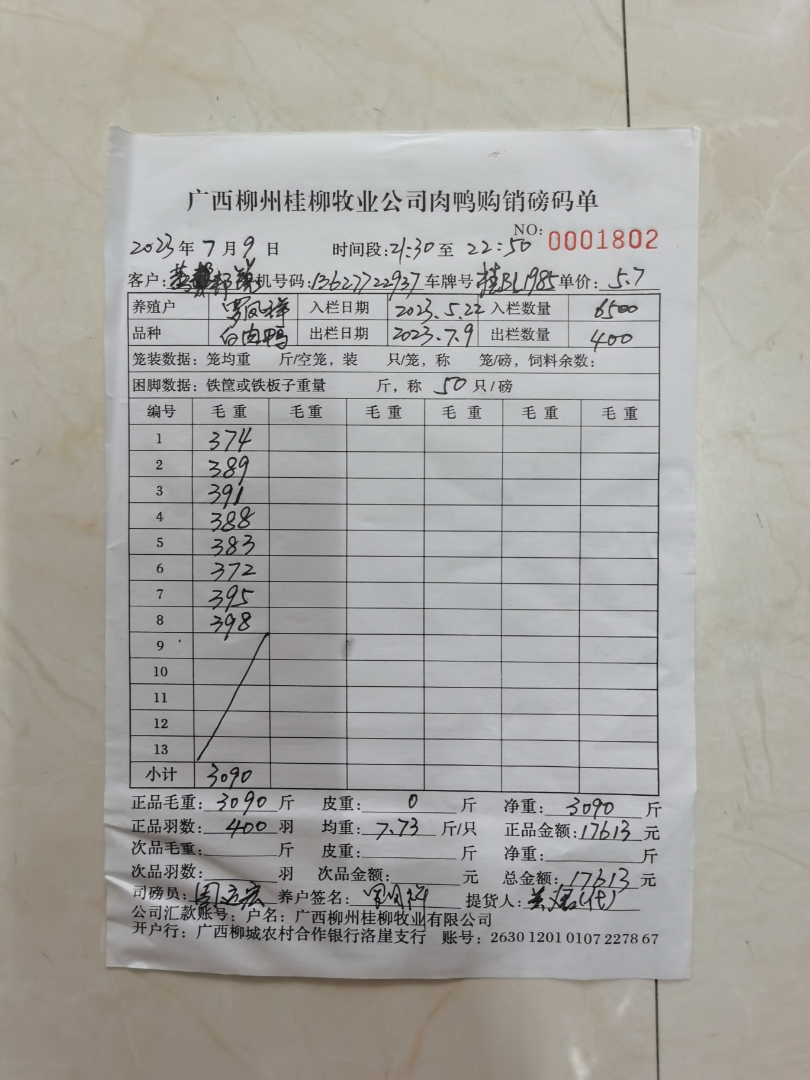 广西柳州桂柳牧业公司肉鸭购销磅码单
NO: 0001802
2023年7月9日 时间段:21:30至22:50
客户: 机号码:13627722937 车牌号:桂BL1985 单价:5.7
养殖户 罗凤祥 入栏日期 2023.5.22 入栏数量 6500
品种 白肉鸭 出栏日期 2023.7.9 出栏数量 400
笼装数据:笼均重 斤/空笼,装 只/笼,称 笼/磅,饲料余数:
困脚数据:铁筐或铁板子重量 斤,称 50 只/磅
编号 毛重 毛重 毛重 毛重 毛重 毛重
1 374
2 389
3 391
4 388
5 383
6 372
7 395
8 398
9
10
11
12
13
小计 3090
正品毛重:3090斤 皮重:0斤 净重:3090斤
正品羽数:400羽 均重:7.73斤/只 正品金额:17613元
次品毛重: 斤 皮重: 斤 净重: 斤
次品羽数: 羽 次品金额: 元 总金额:17613元
司磅员: 养户签名: 提货人: (代)
公司汇款账号:户名:广西柳州桂柳牧业有限公司
开户行:广西柳城农村合作银行洛崖支行 账号:2630 1201 0107 2278 67